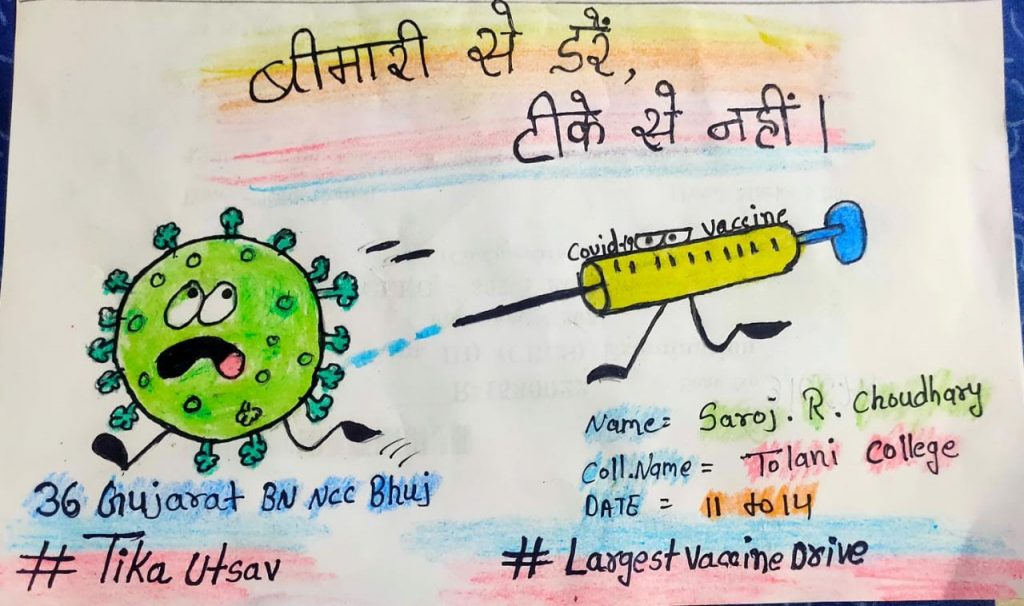 बीमारी से डरें,
टीके से नहीं।
Covid-19 Vaccine
Name = Saroj. R. Choudhary
Coll.Name = Tolani College
DATE = 11 to 14
36 Gujarat BN NCC Bhuj
# Tika Utsav
# Largest Vaccine Drive